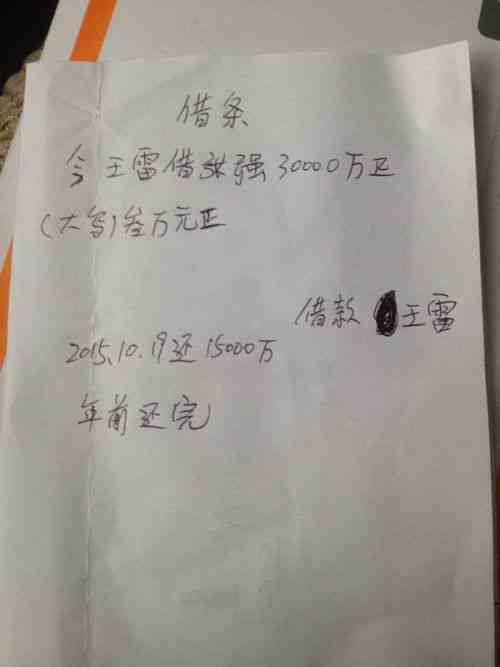 借条
今王雷借张强30000万正
(大写)叁万元正
借款 王雷
2015.10.19还15000万
年前还完